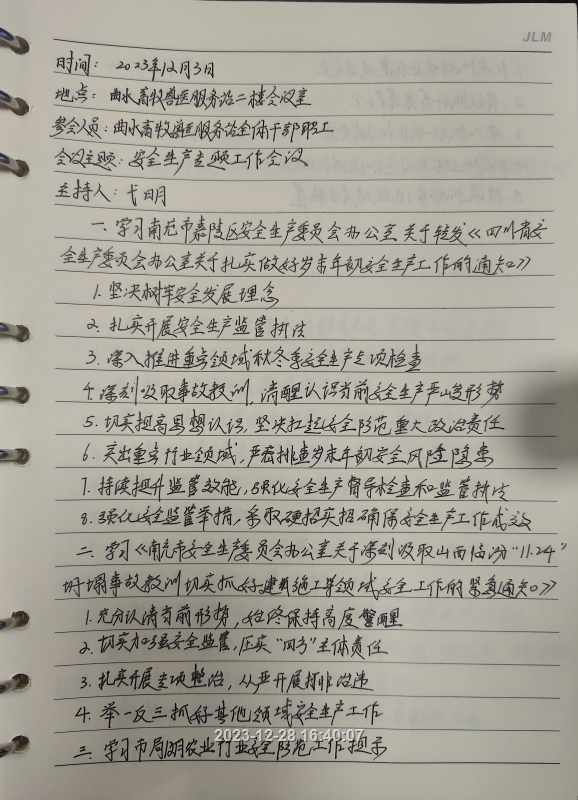 JLM
时间: 2023年12月3日
地点: 曲水畜牧兽医服务站二楼会议室
参会人员: 曲水畜牧兽医服务站全体干部职工
会议主题: 安全生产专题工作会议
主持人: 弋明
一、学习南充市嘉陵区安全生产委员会办公室关于转发《四川省安
全生产委员会办公室关于扎实做好岁末年初安全生产工作的通知》
1. 坚决树牢安全发展理念
2. 扎实开展安全生产监管执法
3. 深入推进重点领域秋冬季安全生产专项检查
4. 深刻吸取事故教训, 清醒认识当前安全生产严峻形势
5. 切实提高思想认识, 坚决扛起安全防范重大政治责任
6. 突出重点行业领域, 严密排查岁末年初安全风险隐患
7. 持续提升监管效能, 强化安全生产督导检查和监管执法
8. 强化安全监管举措, 采取硬招实招确保安全生产工作成效
二、学习《南充市安全生产委员会办公室关于深刻吸取山西临汾"11.24"
坍塌事故教训切实抓好建筑施工等领域安全工作的紧急通知》
1. 充分认清当前形势, 始终保持高度警醒
2. 切实加强安全监管, 压实"四方"主体责任
3. 扎实开展专项整治, 从严开展打非治违
4. 举一反三抓好其他领域安全生产工作
三、学习市局明农业行业安全防范工作提示
2023-12-28 16:40:07